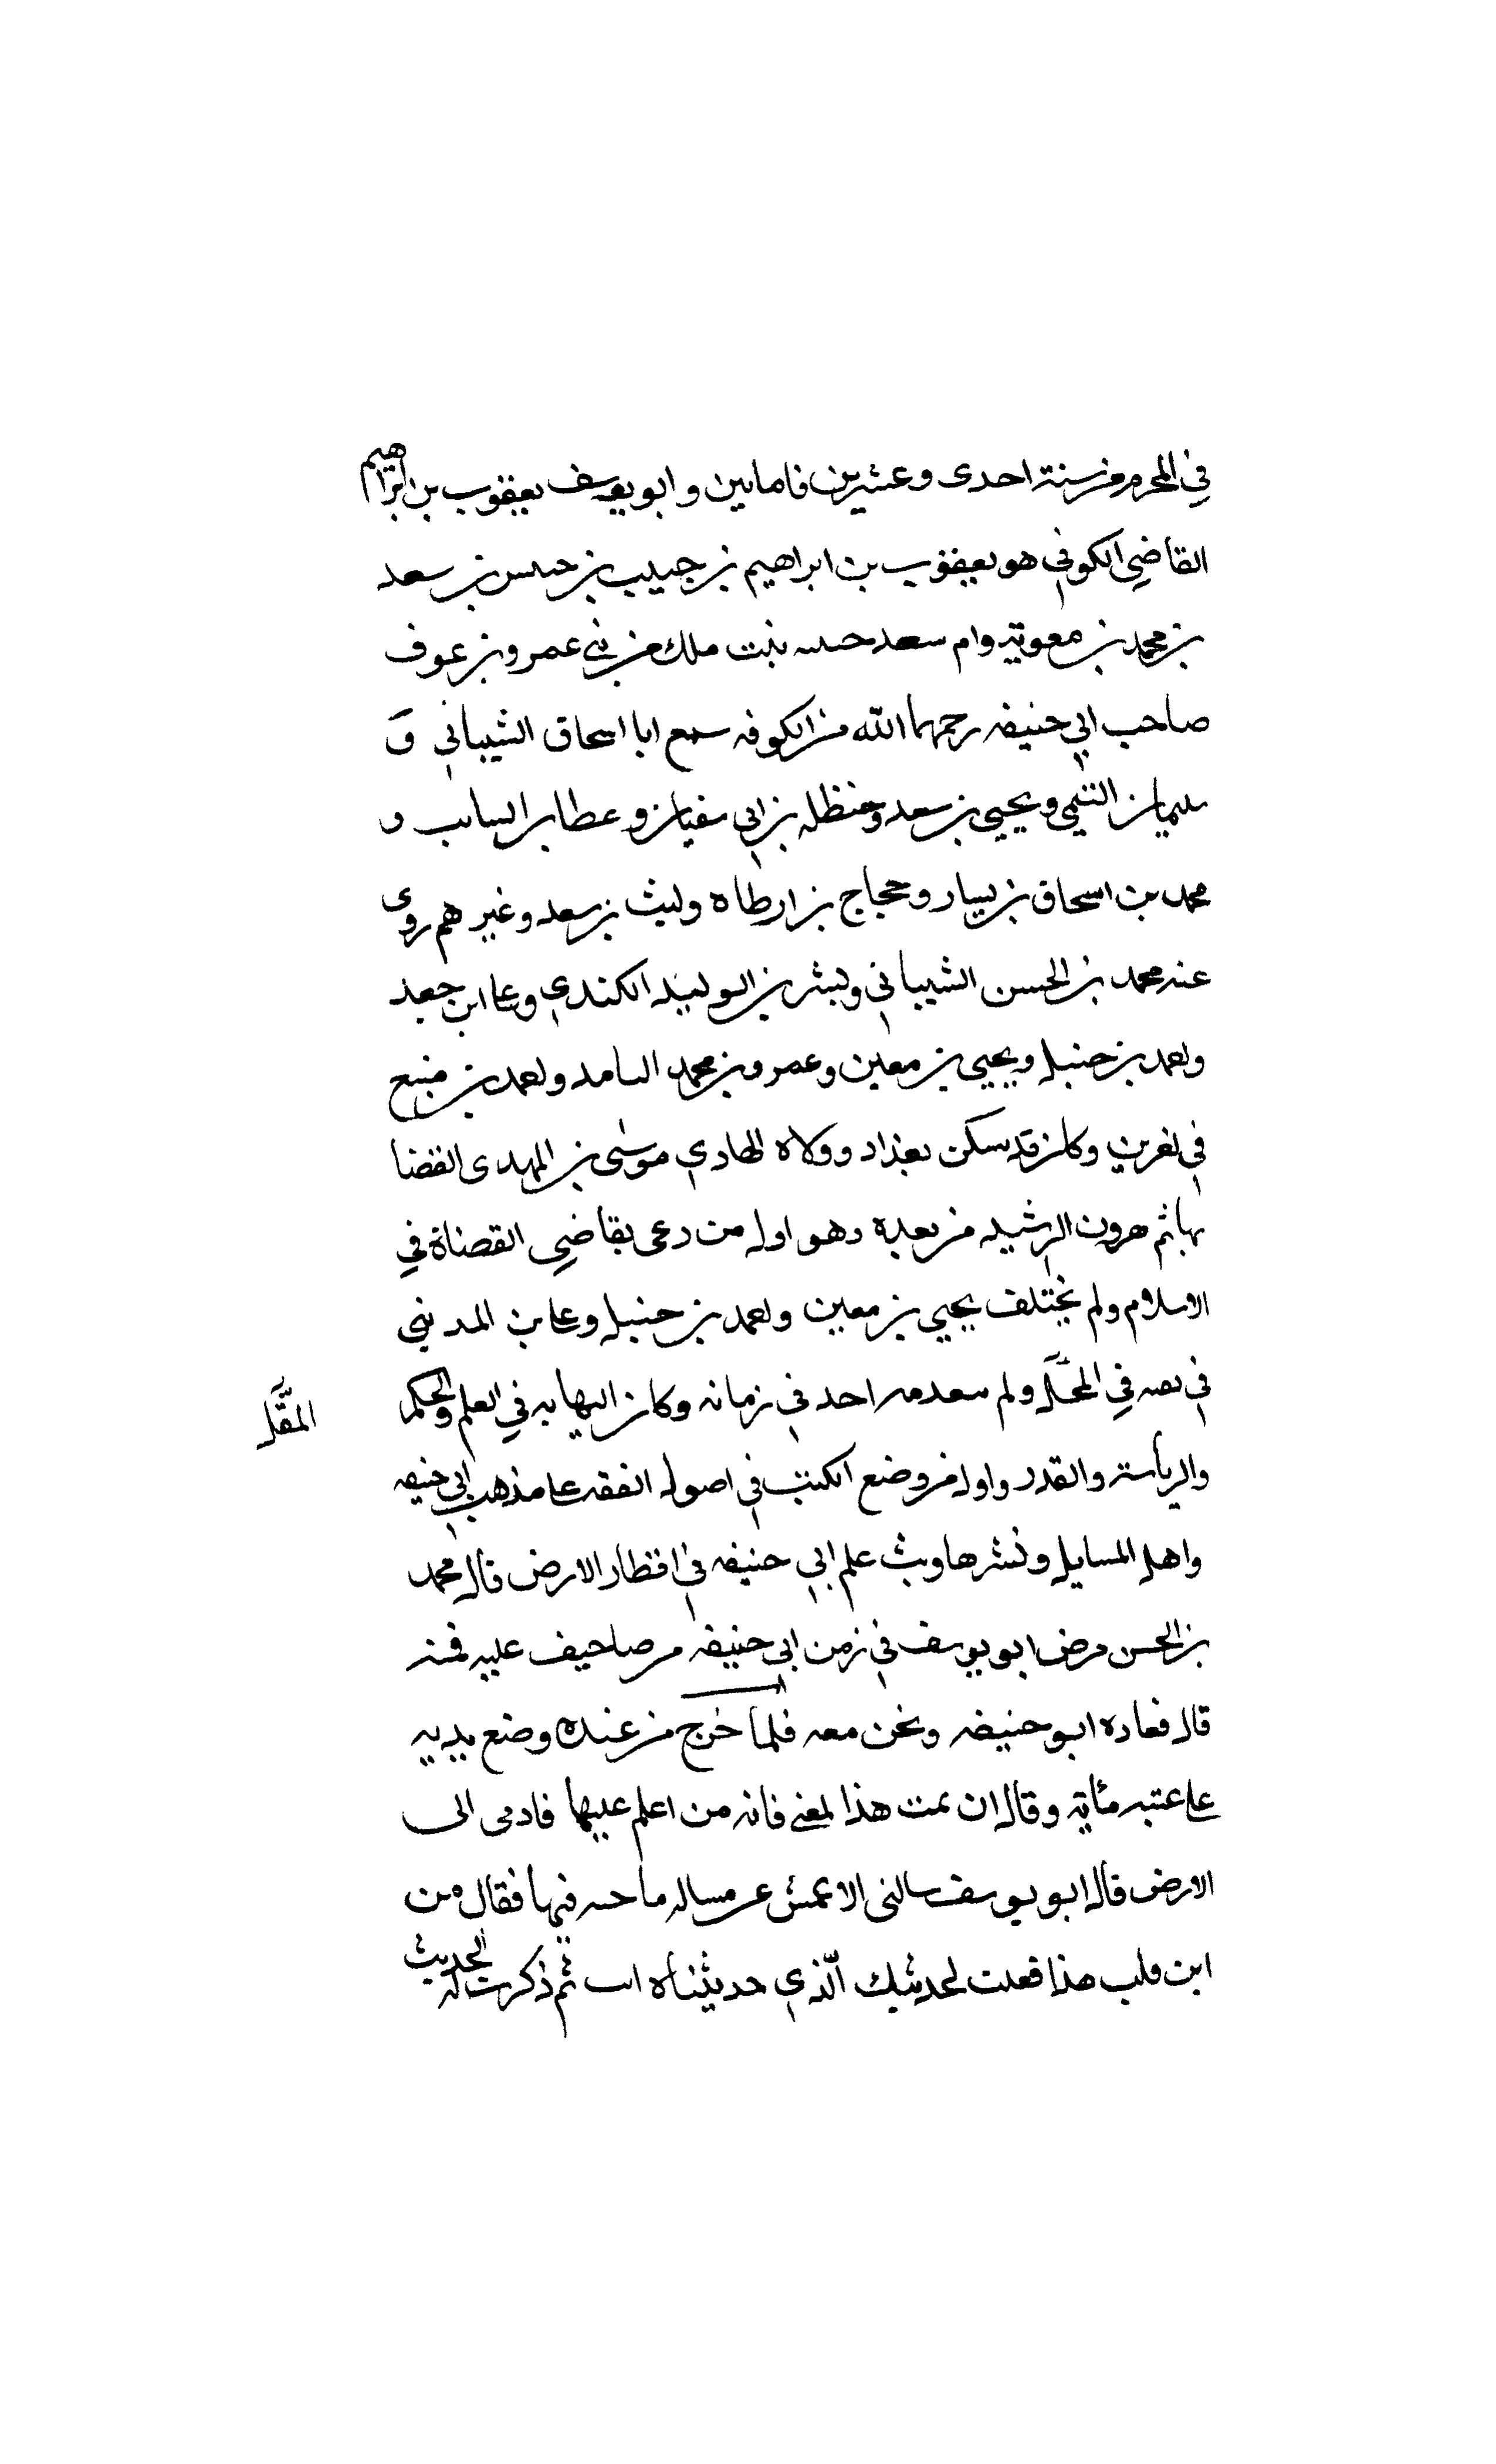 في المحرم من سنة احدى وعشرين فامايين وابو يوسف يعقوب بن ابراهيم
القاضي الكوفي هو يعقوب بن ابراهيم بن حبيب بن حبيس بن سعد
بن محمد بن معوية وام سعد حسه بنت ملك من بني عمرو بن عوف
صاحب ابي حنيفه رحمهما الله من الكوفه سمع ابا اسحاق الشيباني و
سليمان التيمي ويحيى بن سعد وحنظله بن ابي سفيان وعطا بن السايب و
محمد بن اسحاق بن يسار وحجاج بن ارطاه وليث بن سعد وغيرهم روى
عنه محمد بن الحسن الشيباني وبشر بن الوليد الكندي وعلي ابن جعد
واحمد بن حنبل ويحيى بن معين وعمرو بن محمد الناقد واحمد بن منيع
في اخرين وكان قد سكن بغداد وولاه الهادي موسى بن المهدى القضا
بها ثم هرون الرشيد من بعده وهو اول من دعى بقاضي القضاة في
الاسلام ولم يختلف يحيى بن معين واحمد بن حنبل وعلي بن المديني
في في المحل ولم احد في زمانه وكان النهايه في العلم والحكم
المقل
والرياسة والقدر واول من وضع الكتب في اصول الفقه على مذهب ابي حنيفه
واهل المسايل ونشرها وبث علم ابي حنيفه في اقطار الارض قال محمد
بن الحسن مرض ابو يوسف في زمن ابي حنيفه مرضا خيف عليه منه
قال فعاده ابو حنيفه ونحن معه فلما خرج من عنده وضع يديه
على عتبه وقال ان يمت هذا فانه من اعلم عليها فادمى الى
الارض قال ابو يوسف سالنى الاعمش عن مساله فيها فقال من
اين قلت هذا فقلت لحديثك الذي حديثناه ثم ذكرت له الحديث